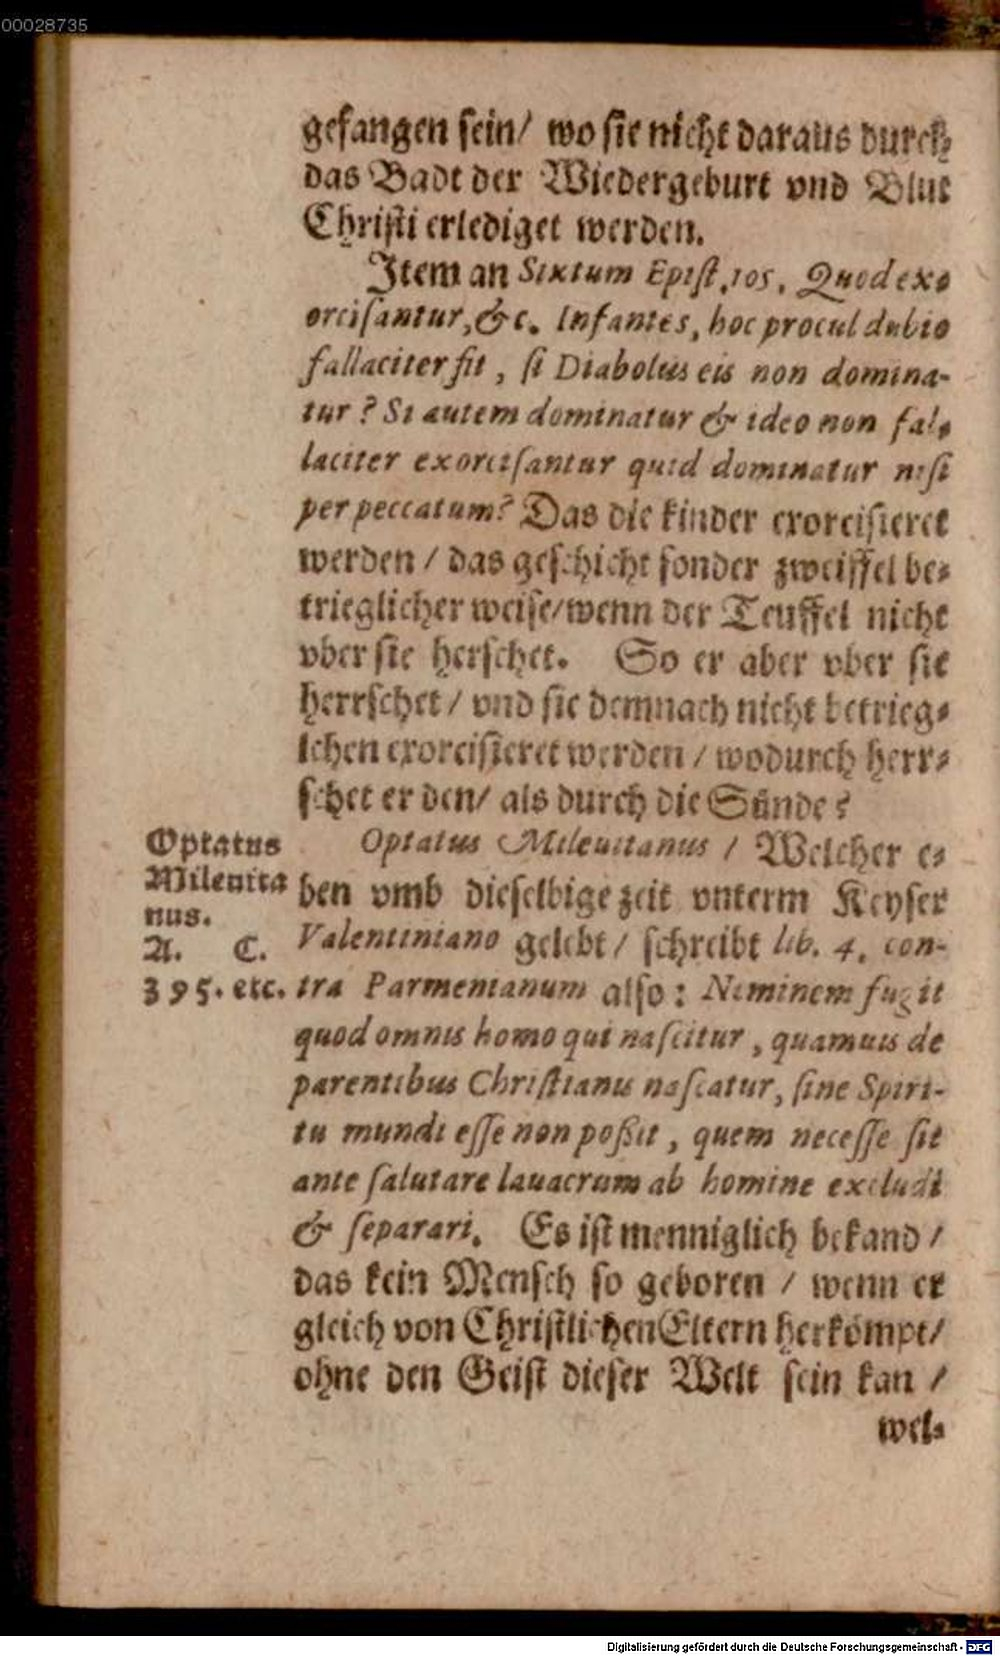 00028735
gefangen sein/ wo sie nicht daraus durch
das Badt der Wiedergeburt vnd Blut
Christi erlediget werden.
Item an Sixtum Epist. 105. Quod exo
orcisantur, &c. Infantes, hoc procul dubio
fallaciter fit, si Diabolus eis non domina-
tur? Si autem dominatur & ideo non fal-
laciter exorcisantur quid dominatur nisi
per peccatum? Das die kinder exorcisieret
werden / das geschicht sonder zweiffel be-
trieglicher weise/wenn der Teuffel nicht
vber sie herschet. So er aber vber sie
herrschet / vnd sie demnach nicht betrieg-
lchen exorcisieret werden / wodurch herr-
schet er den/ als durch die Sünde?
Optatus
Mileuita
nus.
A. C.
395. etc.
Optatus Mileuitanus / Welcher e-
ben vmb dieselbige zeit vnterm Keyser
Valentiniano gelebt / schreibt lib. 4. con-
tra Parmenianum also: Neminem fugit
quod omnis homo qui nascitur, quamuis de
parentibus Christianis nascatur, sine Spiri-
tu mundi esse non poßit, quem necesse sit
ante salutare lauacrum ab homine excludi
& separari. Es ist menniglich bekand /
das kein Mensch so geboren / wenn er
gleich von Christlichen Eltern herkömpt/
ohne den Geist dieser Welt sein kan /
wel-
Digitalisierung gefördert durch die Deutsche Forschungsgemeinschaft - DFG